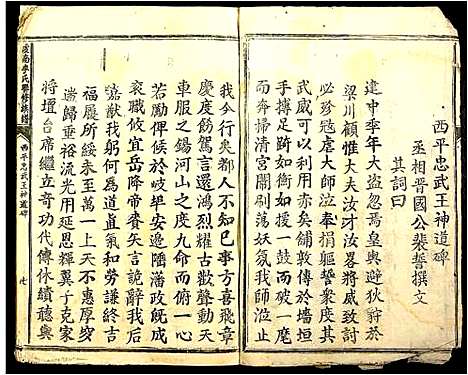 西平忠武王神道碑
丞相晉國公裴誓撰文
其詞曰
建中季年大盜忽焉皇輿避狄狩於
梁川顧惟大夫汝才汝畧將威致討
必殄寇虐大師泣奉捐軀誓眾度其
武威可以利用赤茀在鋪敦傳於墻垣
踣如衝如援手拒觸如雷破一麾
而奔掃清宮闕刷蕩妖氛我泊止
我今行矣都人不知已事方喜飛章
慶度飭駕言還鴻烈耀古散勲動天
車服之錫河山之度九命而俯一心
若勵俾侯於岐旱安邊陲藩政既成
袞職攸宜岳降帝賚矢言詭辭我后
嘉猷我躬何為道直氣和勞謙終吉
福履所綏未念萬一上天不惠厚穸
遄歸垂裕流光用延恩輝翼子克家
將壇台席繼立奇功代傳休績聽輿
西平忠武王神道碑
七